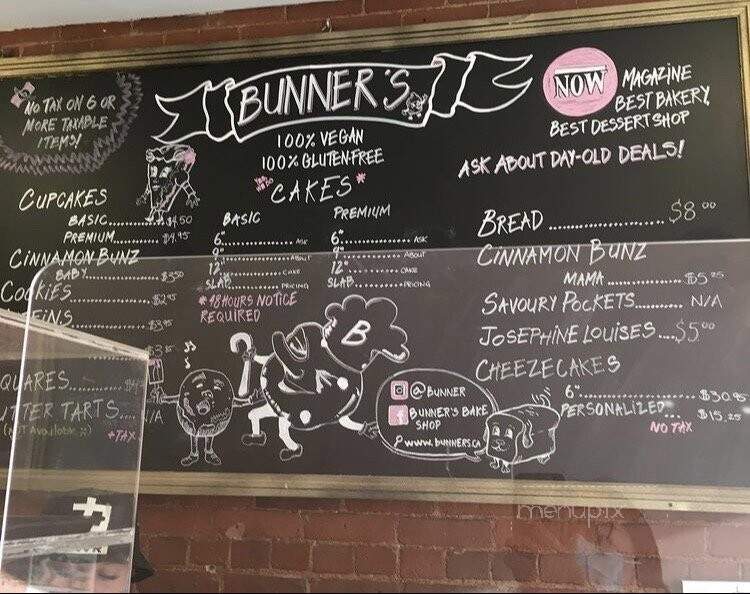 No TAX ON 6 OR
MORE TAXABLE
ITEMS!
BUNNER'S
100% VEGAN
100% GLUTEN-FREE
NOW MAGAZINE
BEST BAKERY,
BEST DESSERT SHOP
ASK ABOUT DAY-OLD DEALS!
CUPCAKES
BASIC........... $4.50
PREMIUM......... $4.95
CINNAMON BUNZ
BABY............ $3.50
COOKIES......... $2.95
EiNS
QUARES
TTER TARTS... /A
(NOT Available)
+TAX
*CAKES*
BASIC
6".............. ASK
9".............. ABOUT
12"............. CAKE
SLAB............ PRICING
PREMIUM
6".............. ASK
9".............. ABOUT
12"............. CAKE
SLAB............ PRICING
*48 HOURS NOTICE
REQUIRED
BREAD ................ $8.00
CINNAMON BUNZ
MAMA ............
SAVOURY POCKETS......... N/A
JOSEPHINE LOUISES....$5.00
CHEEZECAKES
6"..............
PERSONALIZED...
NO TAX
B
@BUNNER
BUNNER'S BAKE
SHOP
www.bunners.ca
menupix